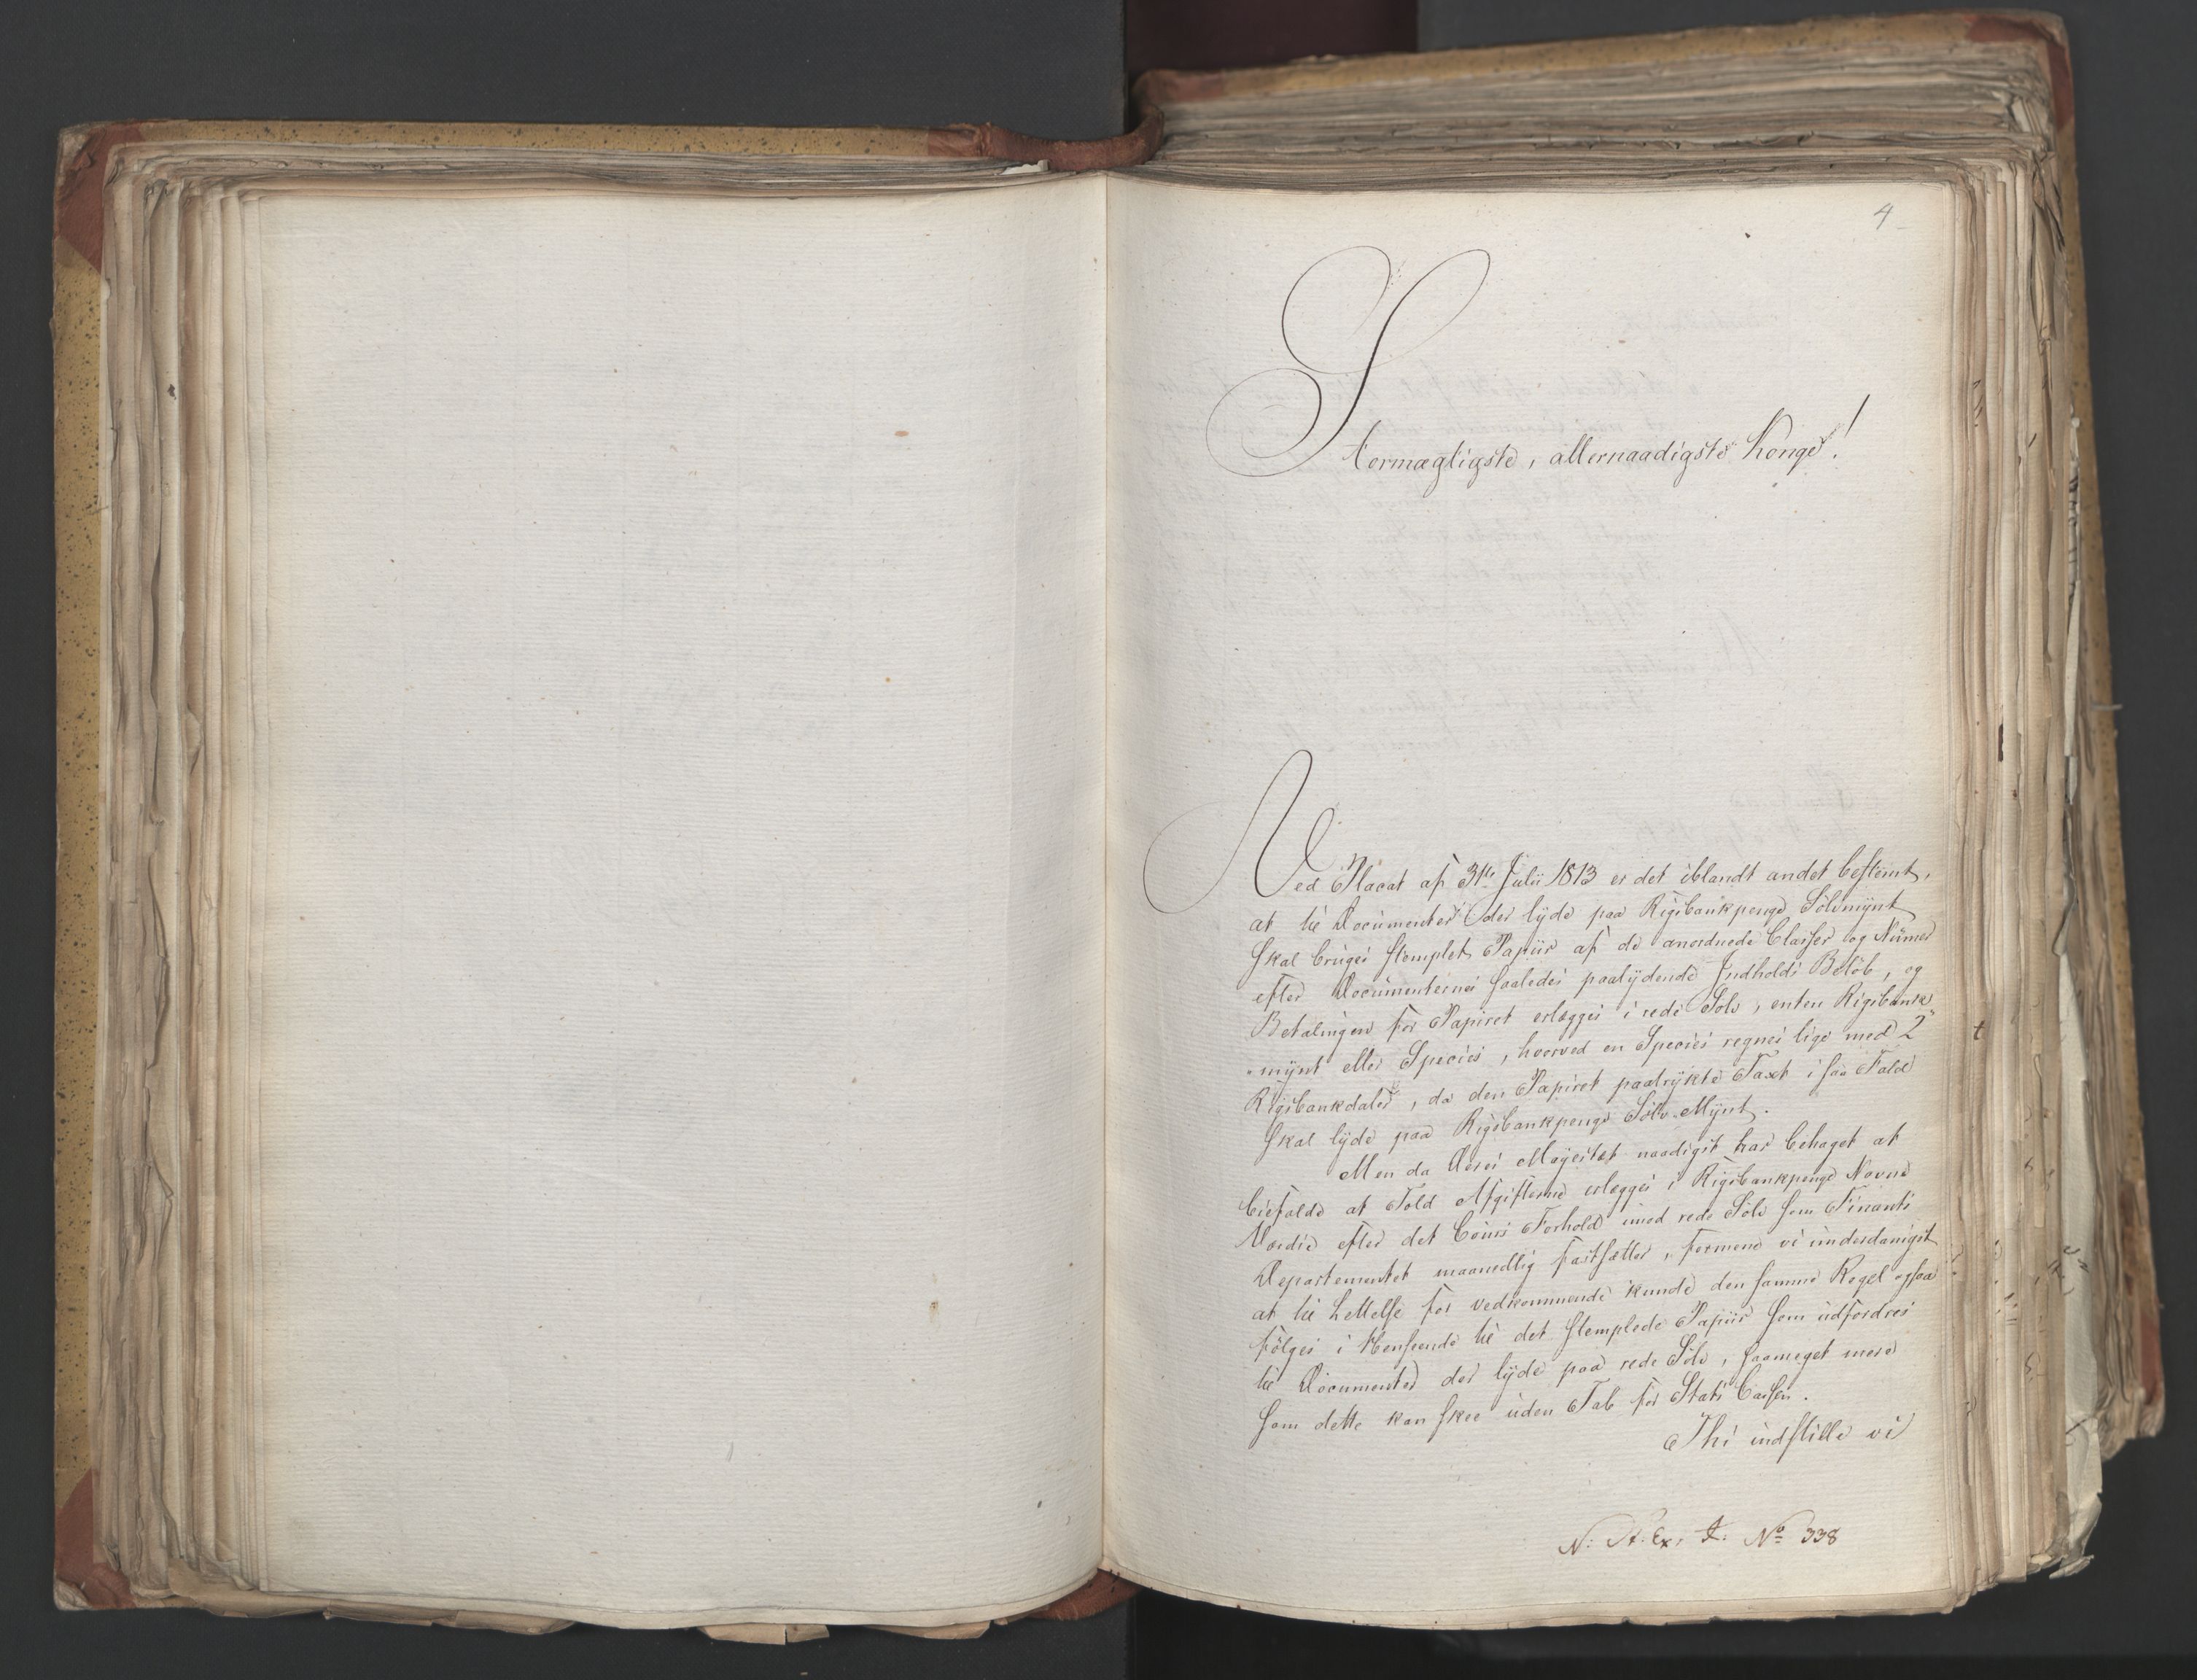 4
Stormægtigste, allernaadigste Konge!
Ved Placat af 31te Julii 1813 er det iblandt andet bestemt,
at til Documenter der lyde paa Rigsbankpenge Sølvmynt
skal bruges stemplet Papiir af de anordnede Classer og Numer
efter Documenternes saaledes paalydende Indholds Beløb, og
Betalingen for Papiret erlægges i rede Sølv, enten Rigsbank
mynt eller Species, hvorved en Species regnes lige med 2
Rigsbankdaler, da den Papiret paatrykte Taxt i saa Fald
skal lyde paa Rigsbankpenge Sølv-Mynt.
Men da Deres Majestæt naadigst har behaget at
bifalde at Told Afgifterne erlægges i Rigsbankpenge Navne
Værdie efter det Cours Forhold imod rede Sølv som Finants
Departementet maanedlig fastsætter, formene vi underdanigst
at til Lettelse for vedkommende kunde den samme Regel ogsaa
følges i Henseende til det stemplede Papiir som udfordres
til Documenter der lyde paa rede Sølv, saameget mere
som dette kan skee uden Tab for Stats Cassen.
Thi indstille vi
N: A: Ex: I: No 338